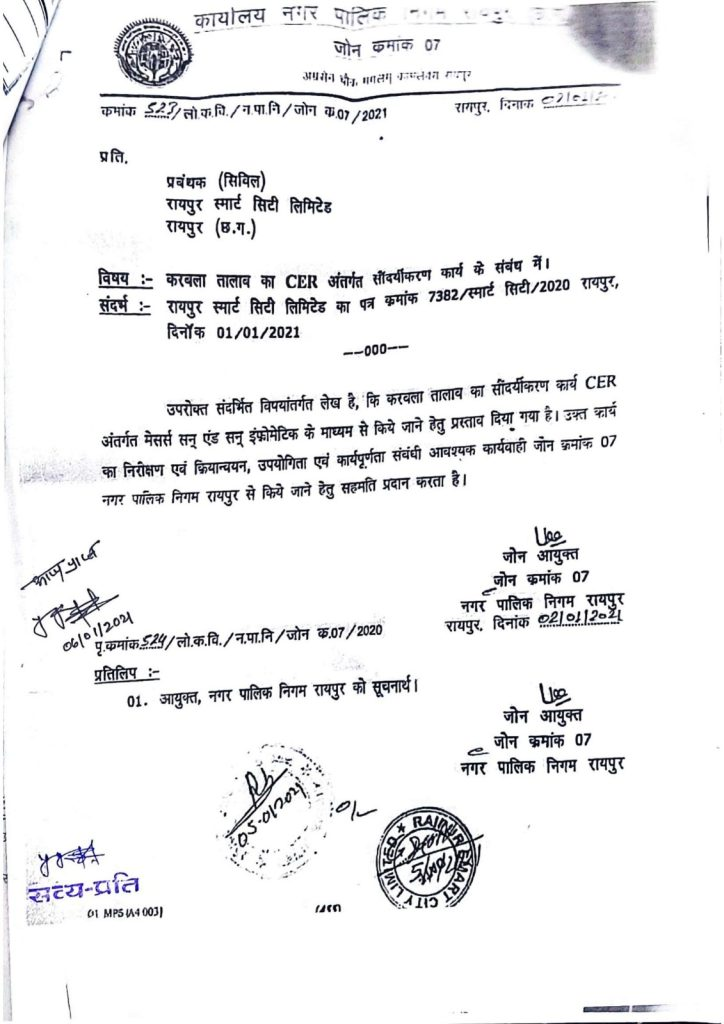 कार्यालय नगर पालिक निगम
जोन क्रमांक 07
अग्रसेन चौक,
क्रमांक 523/लो.क.वि./न.पा.नि/जोन क.07/2021 रायपुर, दिनांक 02/01/2
प्रति,
प्रबंधक (सिविल)
रायपुर स्मार्ट सिटी लिमिटेड
रायपुर (छ.ग.)
विषय :- करबला तालाब का CER अंतर्गत सौंदर्यीकरण कार्य के संबंध में।
संदर्भ :- रायपुर स्मार्ट सिटी लिमिटेड का पत्र क्रमांक 7382/स्मार्ट सिटी/2020 रायपुर,
दिनॉक 01/01/2021
--000--
उपरोक्त संदर्भित विषयांतर्गत लेख है, कि करबला तालाब का सौंदर्यीकरण कार्य CER
अंतर्गत मेसर्स सन् एंड सन् इंफ्रोमेटिक के माध्यम से किये जाने हेतु प्रस्ताव दिया गया है। उक्त कार्य
का निरीक्षण एवं क्रियान्वयन, उपयोगिता एवं कार्यपूर्णता संबंधी आवश्यक कार्यवाही जोन क्रमांक 07
नगर पालिक निगम रायपुर से किये जाने हेतु सहमति प्रदान करता है।
जोन आयुक्त
जोन क्रमांक 07
नगर पालिक निगम रायपुर
रायपुर, दिनांक 02/01/2021
06/01/2021
पृ.क्रमांक 524/लो.क.वि./न.पा.नि/जोन क.07/2020
प्रतिलिप :-
01. आयुक्त, नगर पालिक निगम रायपुर को सूचनार्थ।
जोन आयुक्त
जोन क्रमांक 07
नगर पालिक निगम रायपुर
05.01.2021
RAIPUR SMART CITY LIMITED
सत्य-प्रति
01 MPS (A4 003)